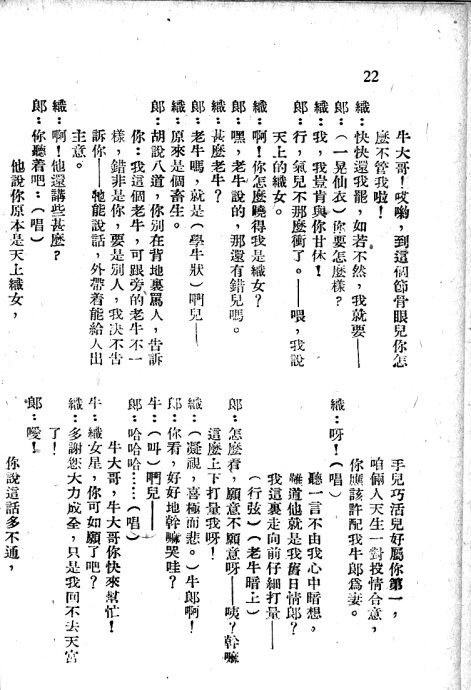 22
牛大哥！哎喲，到這個節骨眼兒你怎
麼不管我啦！
織：快快還我罷，如若不然，我就要——
郎：（一晃仙衣）你要怎麼樣？
織：我，我豈肯與你甘休！
郎：行，氣兒不那麼衝了。——喂，我說
天上的織女。
織：啊！你怎麼曉得我是織女？
郎：嘿，老牛說的，那還有錯兒嗎。
織：甚麼老牛？
郎：老牛嗎，就是（學牛狀）啊兒——
織：原來是個畜生。
郎：胡說八道，你別在背地裏罵人，告訴
你：我這個老牛，可跟旁的老牛不一
樣，錯非是你，要是別人，我決不告
訴你——牠能說話，外帶着能給人出
主意。
織：啊！他還講些甚麼？
郎：你聽着吧：（唱）
他說你原本是天上織女，
手兒巧活兒好屬你第一，
咱倆人天生一對投情合意，
你應該許配我牛郎爲妻。
織：呀！（唱）
聽一言不由我心中暗想，
難道他就是我舊日情郎？
我這裏走向前仔細打量——
（行弦）（老牛暗上）
郎：怎麼着，願意不願意呀——咦？幹嘛
這麼上下打量我呀！
織：（凝視，喜極而悲。）牛郎啊！
郎：你看，好好地幹嘛哭哇？
牛：（叫）啊兒——
郎：哈哈哈……（唱）
牛大哥，牛大哥你快來幫忙！
牛：織女星，你可如願了吧？
織：多謝您大力成全，只是我回不去天宮
了！
郎：噯！
你說這話多不通，